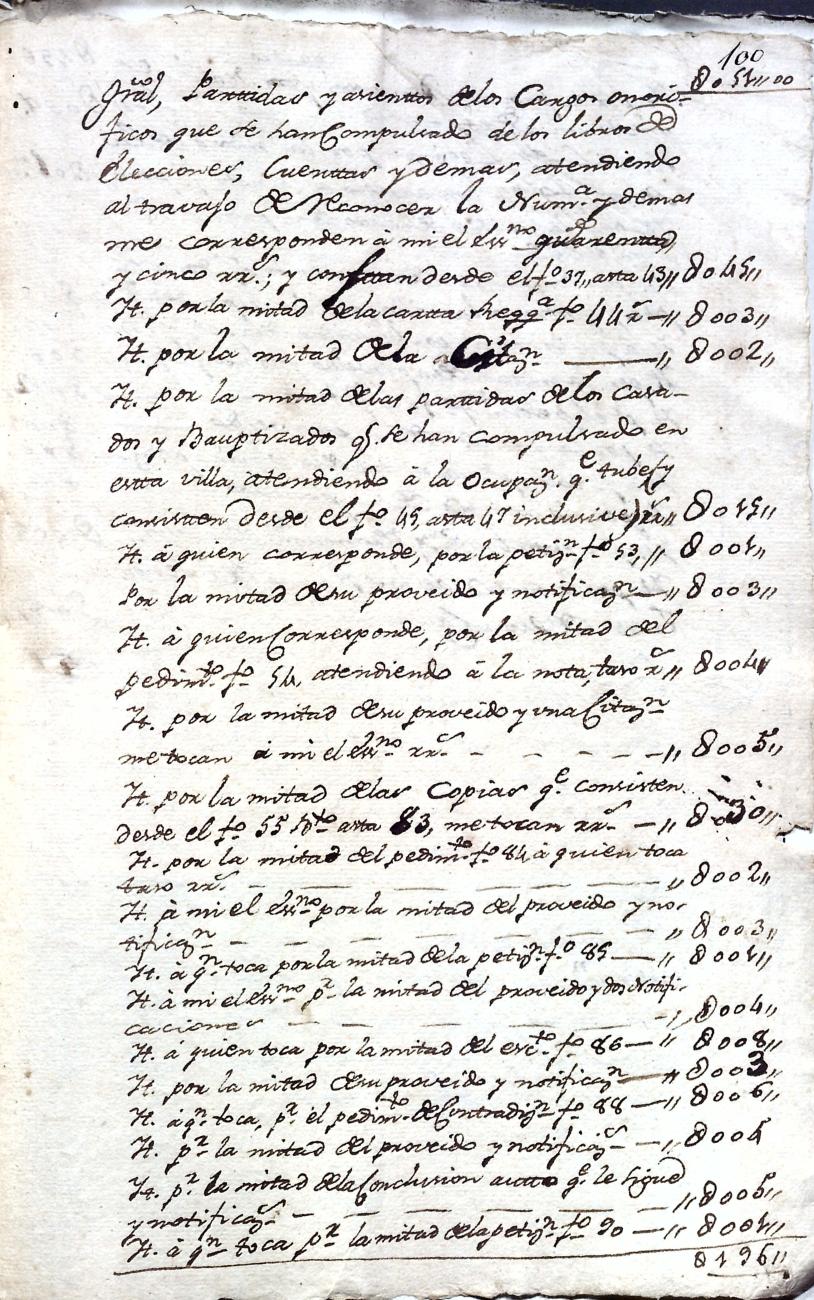 100
8051,,00
Gral, Partidas y asientos delos Cargos onori-
ficos que se han Compulsado de los libros de
Elecciones, Cuenttas y demas, atendiendo
al travajo de Reconocer la Numª y demas
me corresponden â mi el Essno quarentta
y cinco rrs.; y consttan desde el fº 37,, asta 43,, 8045,,
It. por la mitad dela cartta fº 44 r — ,, 8003,,
It. por la mitad de la Citazn — ,, 8002,,
It. por la mitad delas parttidas de los Casa-
dos y Bauptizados q. se han compulsado en
estta villa, atendiendo â la Ocupazn. qe. tube (y
consistten desde el fº 45, asta 47 inclusive) rrs,, 8015,,
It. â quien corresponde, por la petizn fº 53, ,, 8001,,
Por la mitad desu proveido y notificazn — ,, 8003,,
It. â quien Corresponde, por la mitad del
pedimto. fº 54, atendiendo â la nota, taso rs ,, 8004,,
It. por la mitad desu proveido y vna Citazn
me tocan â mi el Essno rrs. - - - - - ,, 8005,,
It. por la mitad delas Copias qe. consisten
desde el fº 55 bto asta 83, me tocan rrs. — ,, 8030,,
It. por la mitad del pedimto fº 84 â quien toca
taso rrs. — — — — — ,, 8002,,
It. â mi el Essno por la mitad del proveido y no-
tificazn — — — — — ,, 8003,,
It. â qn. toca por la mitad dela petizn fº 85 — ,, 8001,,
It. â mi el Essno pr. la mitad del proveido y dos Notifi-
caciones — — — — — ,, 8004,,
It. â quien toca por la mitad del escto. fº 86 — ,, 8008,,
It. por la mitad desu proveido y notificazn — ,, 8003,,
It. â qn. toca, pr. el pedimto de Contradizn fº 88 — ,, 8006,,
It. pr. la mitad del proveido y notificazs — ,, 8005
It. pr. la mitad dela Conclusion autto qe. le sigue
y notificazs. — — — — ,, 8005,,
It. â qn toca pr la mitad dela petizn fº 90 — ,, 8001,,
8196,,